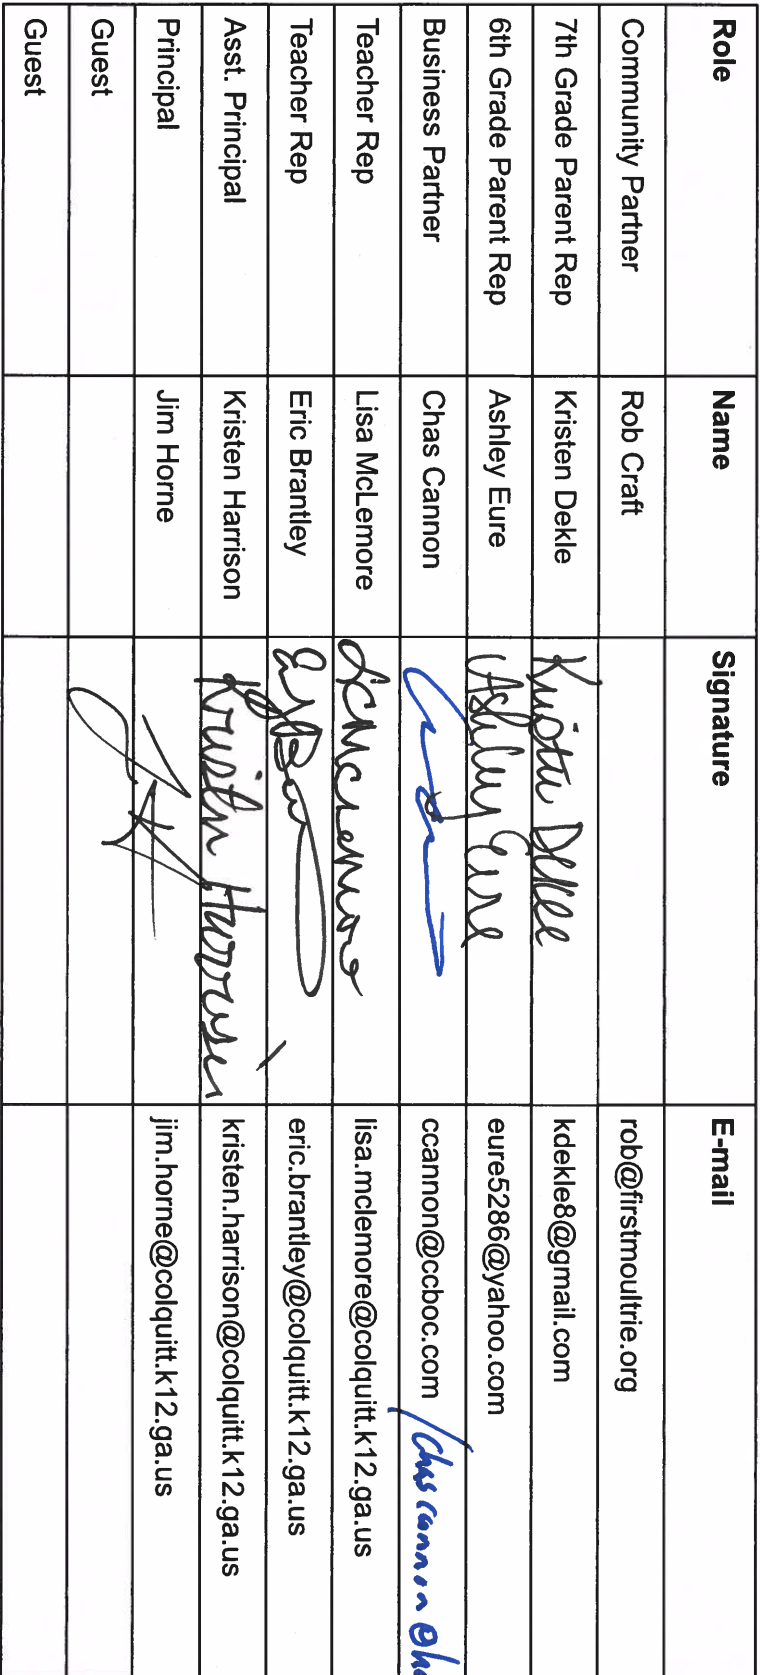 Role Name Signature E-mail
Community Partner Rob Craft rob@firstmoultrie.org
7th Grade Parent Rep Kristen Dekle Kristen Dekle kdekle8@gmail.com
6th Grade Parent Rep Ashley Eure Ashley Eure eure5286@yahoo.com
Business Partner Chas Cannon ccannon@ccboc.com /chascannon@ho
Teacher Rep Lisa McLemore L McLemore lisa.mclemore@colquitt.k12.ga.us
Teacher Rep Eric Brantley eric.brantley@colquitt.k12.ga.us
Asst. Principal Kristen Harrison Kristen Harrison kristen.harrison@colquitt.k12.ga.us
Principal Jim Horne jim.horne@colquitt.k12.ga.us
Guest
Guest